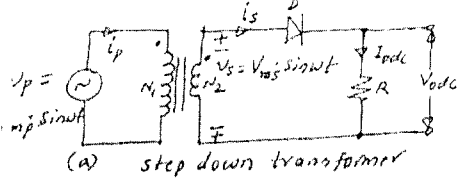 i_p
i_s
D
v_p =
mp sinωt
N₁
N₂
v_s = V_ms sinωt
I_odc
R
V_odc
(a) step down transformer